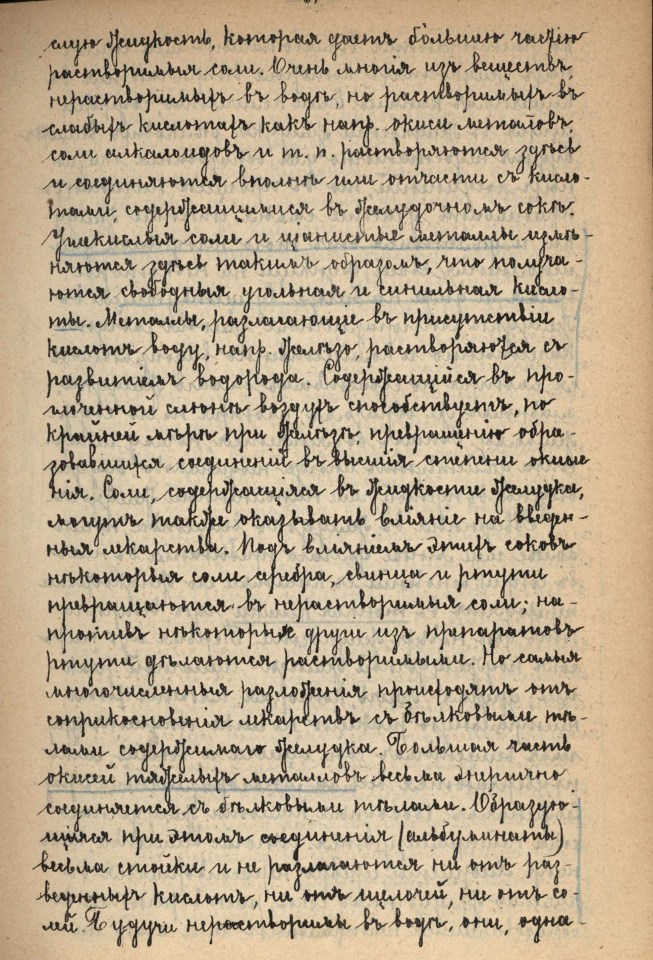 слую жидкость, которая даетъ бо́льшию частію
растворимыя соли. Очень многія изъ веществъ,
нерастворимыхъ въ водѣ, но растворимыхъ въ
слабыхъ кислотахъ какъ напр. окиси металовъ,
соли алкалоидовъ и т. п. растворяются здѣсь
и соединяются вполнѣ или отчасти съ кисло-
тами, содержащимися въ желудочномъ сокѣ.
Углекислыя соли и ціанистые металлы измѣ-
няются здѣсь такимъ образомъ, что получа-
ются свободныя угольная и синильная кисло-
ты. Металлы, разлагающіе въ присутствіи
кислотъ воду, напр. желѣзо, растворяются съ
развитіемъ водорода. Содержащійся въ про-
глоченной слюнѣ воздухъ способствуетъ, по
крайней мѣрѣ при желѣзѣ, превращенію обра-
зовавшихся соединеній въ высшія степени окисле
нія. Соли, содержащіяся въ жидкости желудка,
могутъ также оказывать вліяніе на введен-
ныя лекарства. Подъ вліяніемъ этихъ соковъ
нѣкоторыя соли серебра, свинца и ртути
превращаются въ нерастворимыя соли; на-
противъ нѣкоторые другіе изъ препаратовъ
ртути дѣлаются растворимыми. Но самыя
многочисленныя разложенія происходятъ отъ
соприкосновенія лекарствъ съ бѣлковыми тѣ-
лами содержимаго желудка. Большая часть
окисей тяжелыхъ металловъ весьма энергично
соединяется съ бѣлковыми тѣлами. Образую-
щіяся при этомъ соединенія (альбуминаты)
весьма стойки и не разлагаются ни отъ раз-
веденныхъ кислотъ, ни отъ щелочей, ни отъ со-
лей. Будучи нерастворимы въ водѣ, они, одна-